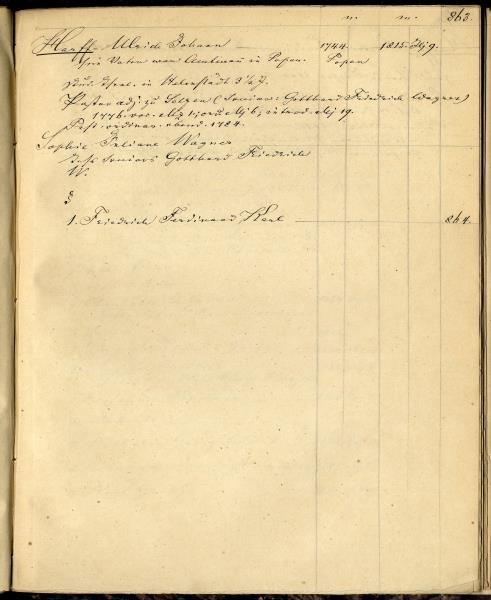 n. n. 863.
Harff Ulrich Johann 1744. 1815.
Sein Vater war Amtman in Popen. Popen
stud. theol. in Helmstädt 3 1/2 J.
Pastor adj. zu (Senior: Gotthard Friedrich Wagner)
1776.
Past. ordinar. ebend. 1784.
Sophie Juliane Wagner
Seniors Gotthard Friedrich
W.
§
1. Friedrich Ferdinand Karl 864.